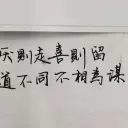 厌则走喜则留
道不同不相为谋